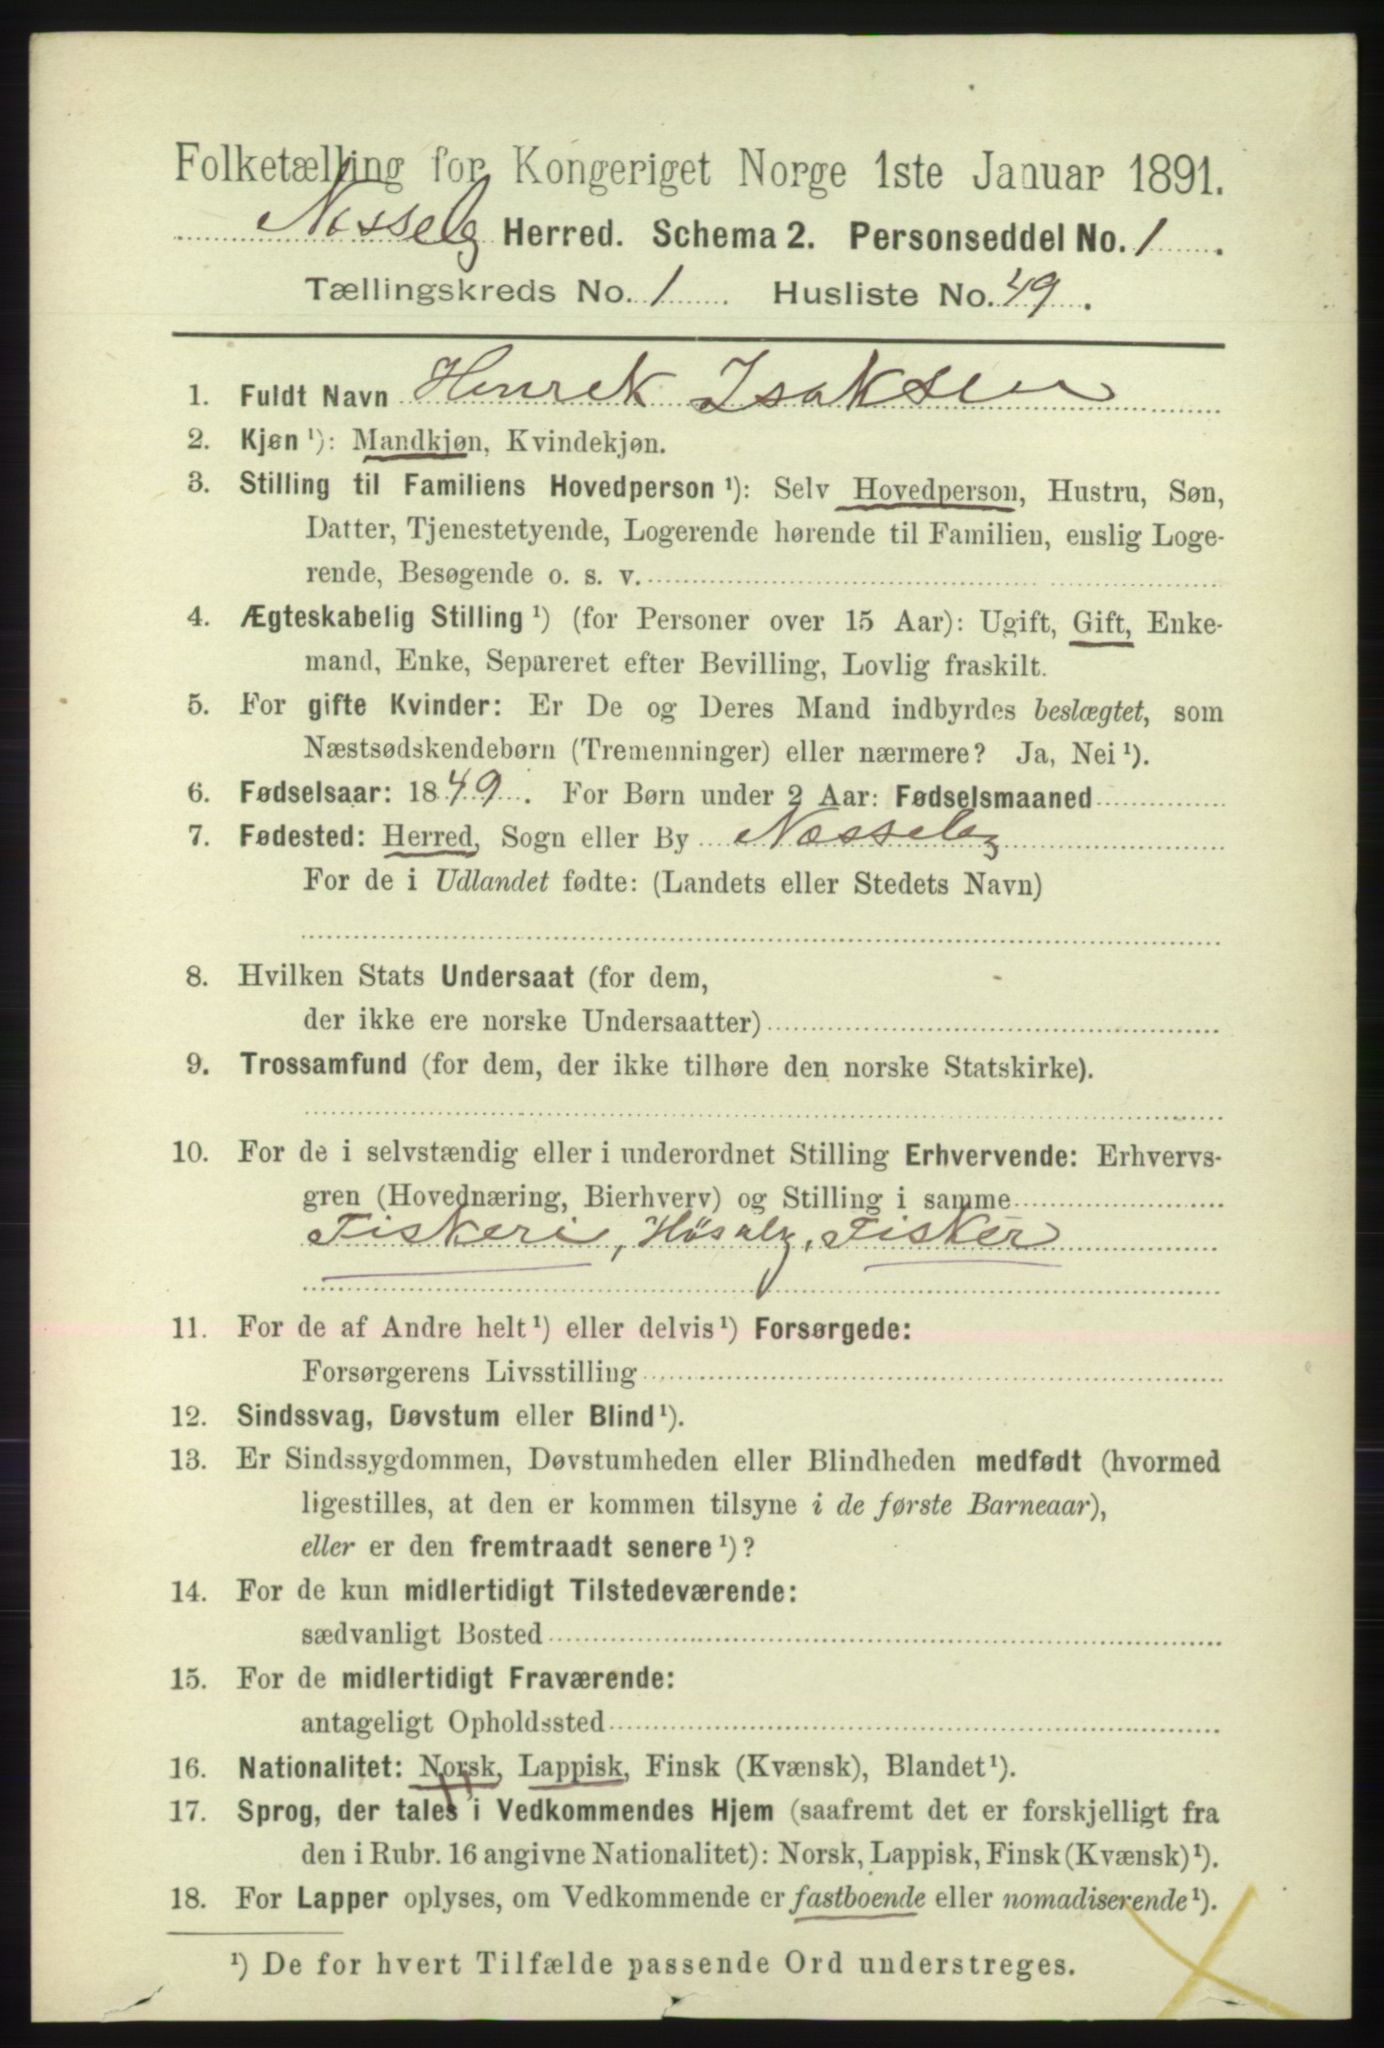 Folketælling for Kongeriget Norge 1ste Januar 1891.
Nesselg Herred. Schema 2. Personseddel No. 1.
Tællingskreds No. 1. Husliste No. 49.
1. Fuldt Navn Henrek Isaksen
2. Kjøn ¹): Mandkjøn, Kvindekjøn.
3. Stilling til Familiens Hovedperson ¹): Selv Hovedperson, Hustru, Søn,
Datter, Tjenestetyende, Logerende hørende til Familien, enslig Loge-
rende, Besøgende o. s. v.
4. Ægteskabelig Stilling ¹) (for Personer over 15 Aar): Ugift, Gift, Enke-
mand, Enke, Separeret efter Bevilling, Lovlig fraskilt.
5. For gifte Kvinder: Er De og Deres Mand indbyrdes beslægtet, som
Næstsødskendebørn (Tremenninger) eller nærmere? Ja, Nei ¹).
6. Fødselsaar: 1849. For Børn under 2 Aar: Fødselsmaaned
7. Fødested: Herred, Sogn eller By Nesselg
For de i Udlandet fødte: (Landets eller Stedets Navn)
8. Hvilken Stats Undersaat (for dem,
der ikke ere norske Undersaatter)
9. Trossamfund (for dem, der ikke tilhøre den norske Statskirke).
10. For de i selvstændig eller i underordnet Stilling Erhvervende: Erhvervs-
gren (Hovednæring, Bierhverv) og Stilling i samme
Fiskeri, Fisker
11. For de af Andre helt ¹) eller delvis ¹) Forsørgede:
Forsørgerens Livsstilling
12. Sindssvag, Døvstum eller Blind ¹).
13. Er Sindssygdommen, Døvstumheden eller Blindheden medfødt (hvormed
ligestilles, at den er kommen tilsyne i de første Barneaar),
eller er den fremtraadt senere ¹)?
14. For de kun midlertidigt Tilstedeværende:
sædvanligt Bosted
15. For de midlertidigt Fraværende:
antageligt Opholdssted
16. Nationalitet: Norsk, Lappisk, Finsk (Kvænsk), Blandet ¹).
17. Sprog, der tales i Vedkommendes Hjem (saafremt det er forskjelligt fra
den i Rubr. 16 angivne Nationalitet): Norsk, Lappisk, Finsk (Kvænsk) ¹).
18. For Lapper oplyses, om Vedkommende er fastboende eller nomadiserende ¹).
¹) De for hvert Tilfælde passende Ord understreges.